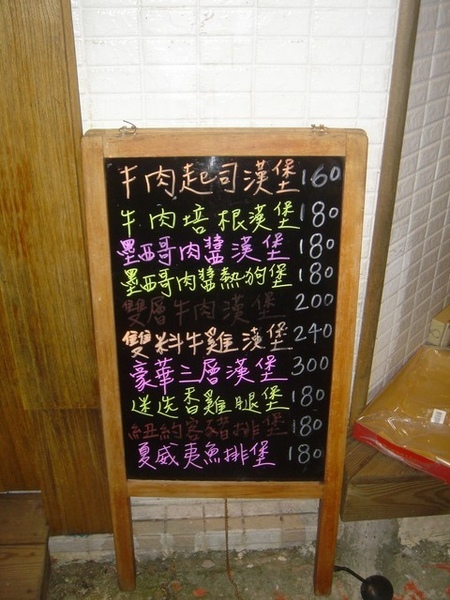 牛肉起司漢堡 160
牛肉培根漢堡 180
墨西哥肉醬漢堡 180
墨西哥肉醬熱狗堡 180
雙層牛肉漢堡 200
雙料牛雞漢堡 240
豪華三層漢堡 300
迷迭香雞腿堡 180
紐約客豬排堡 180
夏威夷魚排堡 180